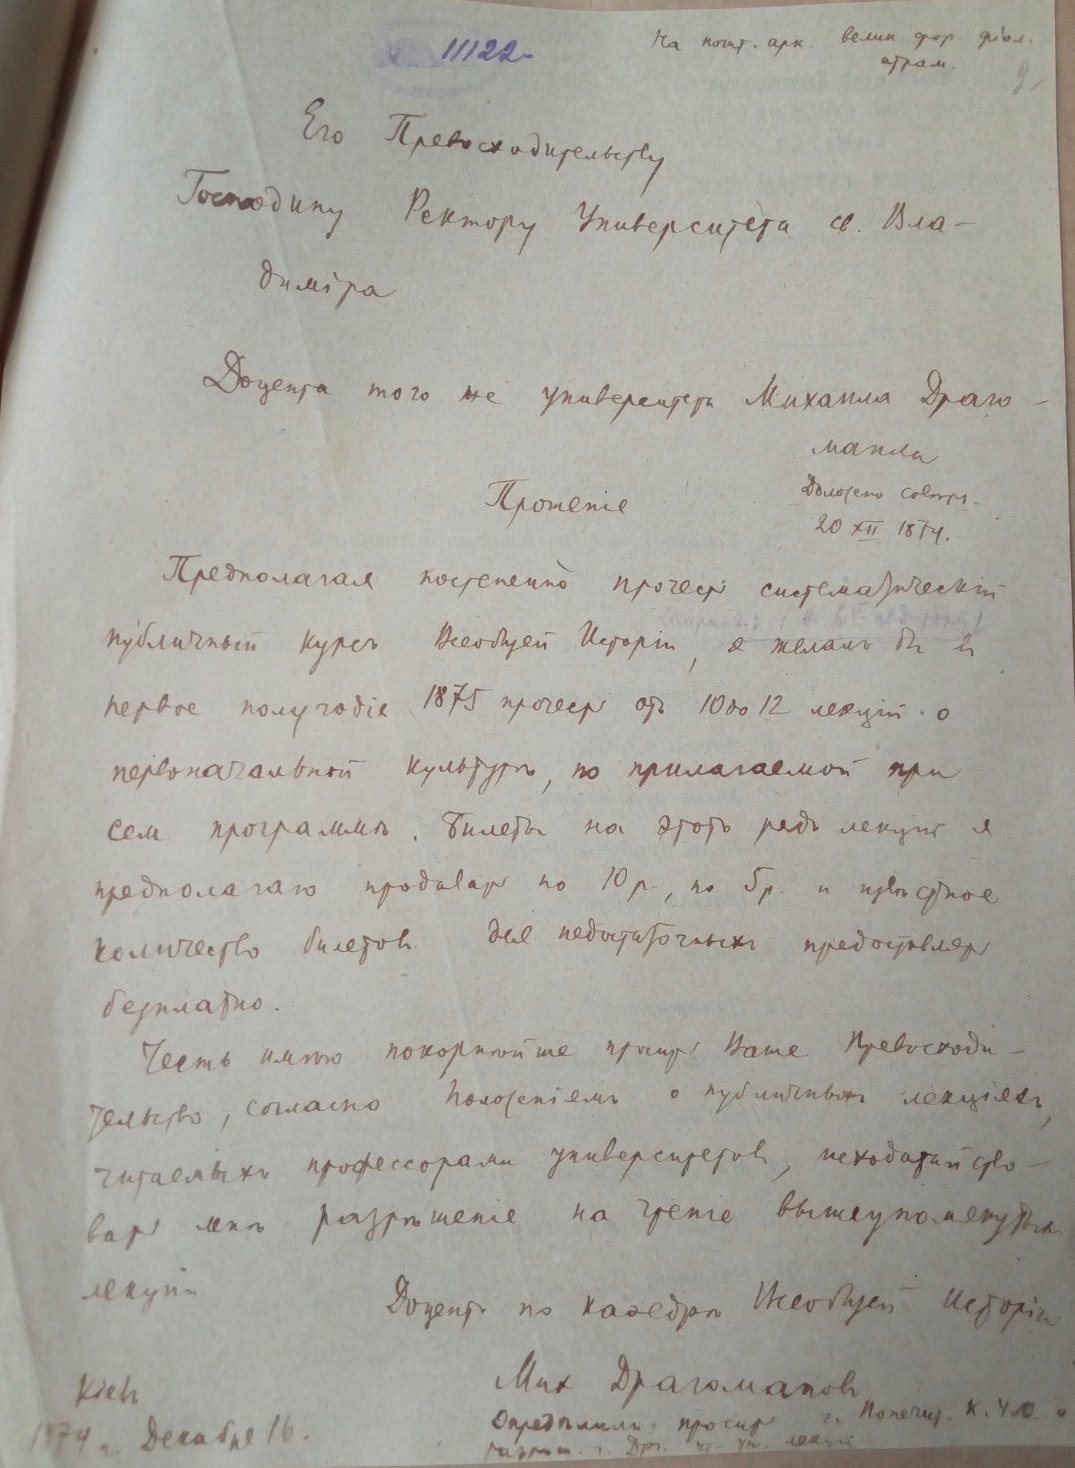 11122
На пошт. арк. велик. фор. фіол.
атрам.
2
Его Превосходительству
Господину Ректору Университета св. Вла-
диміра
Доцента того же университета Михаила Драго-
манова
Доложено совету
20 XII 1874.
Прошеніе
Предполагая постепенно прочесть систематическій
публичный курсъ Всеобщей Исторіи, я желалъ бы въ
первое полугодіе 1875 прочесть отъ 10 до 12 лекцій о
первоначальной культурѣ, по прилагаемой при
сем программѣ. Билеты на этотъ рядъ лекцій я
предполагаю продавать по 10 р., по 5 р. и извѣстное
количество билетовъ для недостаточныхъ предоставлять
безплатно.
Честь имѣю покорнѣйше просить Ваше Превосходи-
тельство, согласно Положеніемъ о публичныхъ лекціяхъ,
читаемыхъ профессорами университетовъ, исходатайство-
вать мнѣ разрѣшеніе на чтеніе вышеупомянутыхъ
лекцій
Доцентъ по кафедрѣ Всеобщей Исторіи
Мих Драгомановъ
Кіевъ
1874 г. Декабря 16.
Определили: просить г. Попечит. К. У. О. о
разреш. г. Др. лекцій